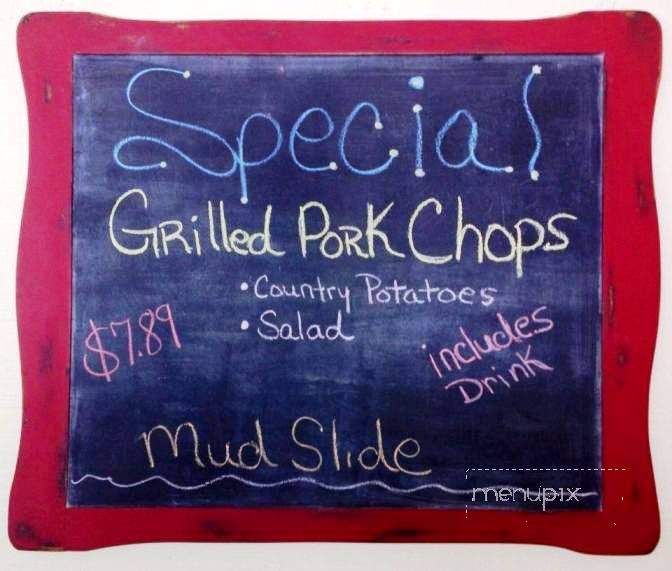 Special
Grilled Pork Chops
• Country Potatoes
• Salad
$7.89
includes
Drink
Mud Slide
menupix